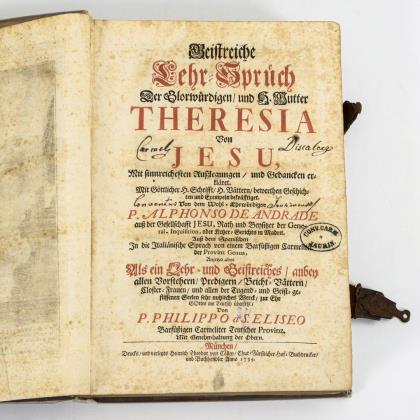 Geistreiche
Lehr-Sprüch
Der Glorwürdigen/ und H. Mutter
THERESIA
Von
Carmel. Discalceat.
JESU,
Mit sinnreichesten Außlegungen/ und Gedancken erkläret.
Mit Göttlicher H. Schrifft/ H. Vättern/ bewerthen Geschichten
und Exempeln bekräfftiget.
Conventus
Von dem Wohl-Ehrwürdigen
P. ALPHONSO DE ANDRADE
auß der Gesellschafft JESU, Rath und Beysitzer der General-Inquisition,
oder Ketzer-Gerichts in Madrit.
Auß dem Spanischen
In die Italiänische Sprach von einem Barfüßigen Carmeliter
der Provinz Genua,
Anjetzo aber
Als ein Lehr- und Geistreiches/ anbey
allen Vorstehern/ Predigern/ Beicht-Vättern/
Closter-Frauen/ und allen der Tugend- und Geist-geflissenen
Seelen sehr nutzliches Werck/ zur Ehr
GOttes ins Teutsch übersetzt/
Von
P. PHILIPPO à S. ELISEO
Barfüßigen Carmeliter Teutscher Provinz,
Mit Genehmhaltung der Obern.
München/
Druckts/ und verlegts Heinrich Theodor von Cöllen/ Chur-Fürstlicher Hof-Buchdrucker/
und Buchhändler Anno 1734.
CONV. CARM.